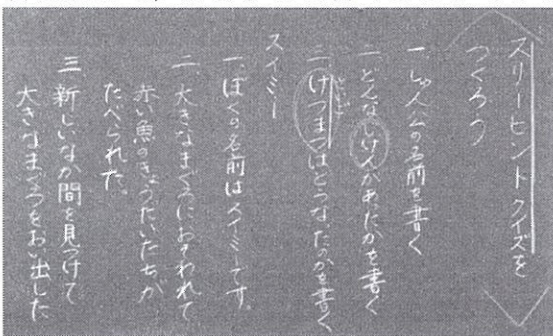 スリーヒントクイズを
つくろう
一、しゅ人公の名前を書く
二、どんなじけんがあったかを書く
三、けつまつはどうなったのかを書く
スイミー
一、ぼくの名前はスイミーです。
二、大きなまぐろにおそわれて
赤い魚のきょうだいたちが
たべられた。
三、新しいなか間を見つけて
大きなまぐろをおい出した